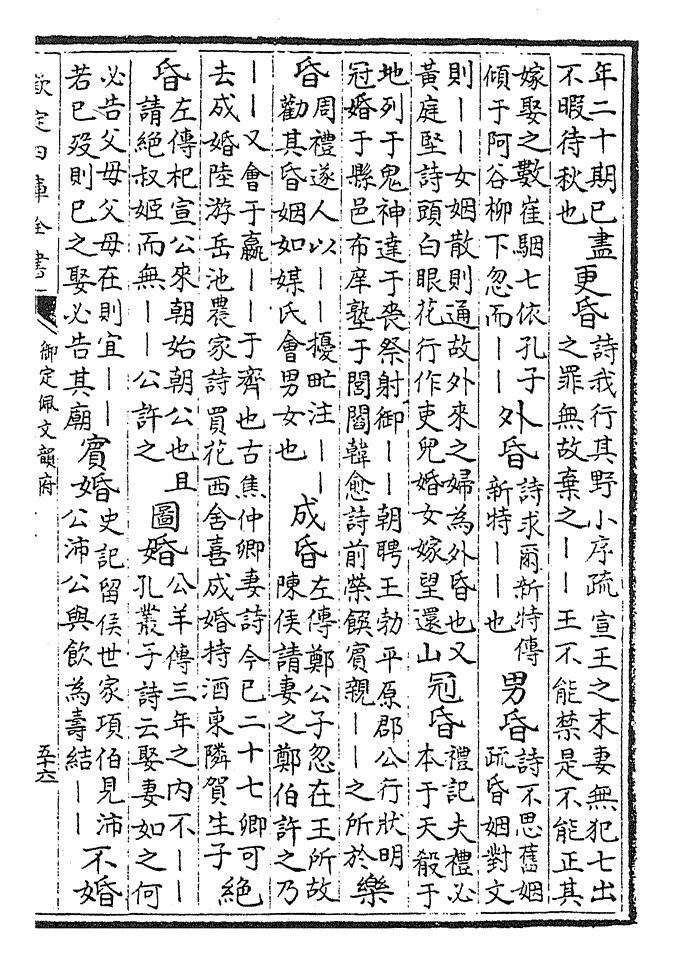 年二十期已盡
不暇待秋也
更昏
詩我行其野小序疏宣王之末妻無犯七出
之罪無故棄之——王不能禁是不能正其
嫁娶之數崔駰七依孔子
傾于阿谷柳下忽而——
外昏
詩求爾新特傳
新特——也
男昏
詩不思舊姻
疏昏姻對文
則——女姻散則通故外來之婦為外昏也又
黃庭堅詩頭白眼花行作吏兒婚女嫁望還山
冠昏
禮記夫禮必
本于天殽于
地列于鬼神達于喪祭射御——朝聘王勃平原郡公行狀明
冠婚于縣邑布庠塾于閭閻韓愈詩前榮饌賓親——之所於
樂
昏
周禮遂人以——擾甿注——
勸其昏姻如媒氏會男女也
成昏
左傳鄭公子忽在王所故
陳侯請妻之鄭伯許之乃
——又會于嬴——于濟也古焦仲卿妻詩今已二十七卿可
去成婚陸游岳池農家詩買花西舍喜成婚持酒東隣賀生子
絕
昏
左傳杞宣公來朝始朝公也且
請絕叔姬而無——公許之
圖婚
公羊傳三年之內不——
孔叢子詩云娶妻如之何
必告父母父母在則宜——
若已歿則已之娶必告其廟
賓婚
史記留侯世家項伯見沛
公沛公與飲為壽結——
不婚
欽定四庫全書
御定佩文韻府
五十六